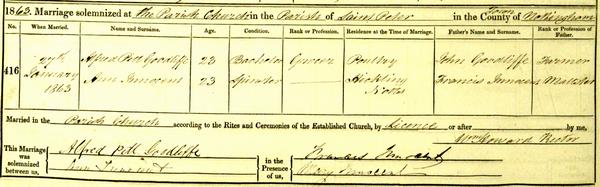 1863. Marriage solemnized at The Parish Church in the Parish of Saint Peter in the County of Nottingham
Town
No. When Married. Name and Surname. Age. Condition. Rank or Profession. Residence at the Time of Marriage. Father's Name and Surname. Rank or Profession of Father.
416 27th January 1863 Alfred Pott Goodliffe 23 Bachelor Grocer Poultry John Goodliffe Farmer
Ann Innocent 23 Spinster — Hickling Notts Francis Innocent Maltster
Married in the Parish Church according to the Rites and Ceremonies of the Established Church, by Licence or after by me,
Wm Howard Rector
This Marriage was solemnized between us, Alfred Pott Goodliffe
Ann Innocent
in the Presence of us, Francis Innocent
Mary Innocent